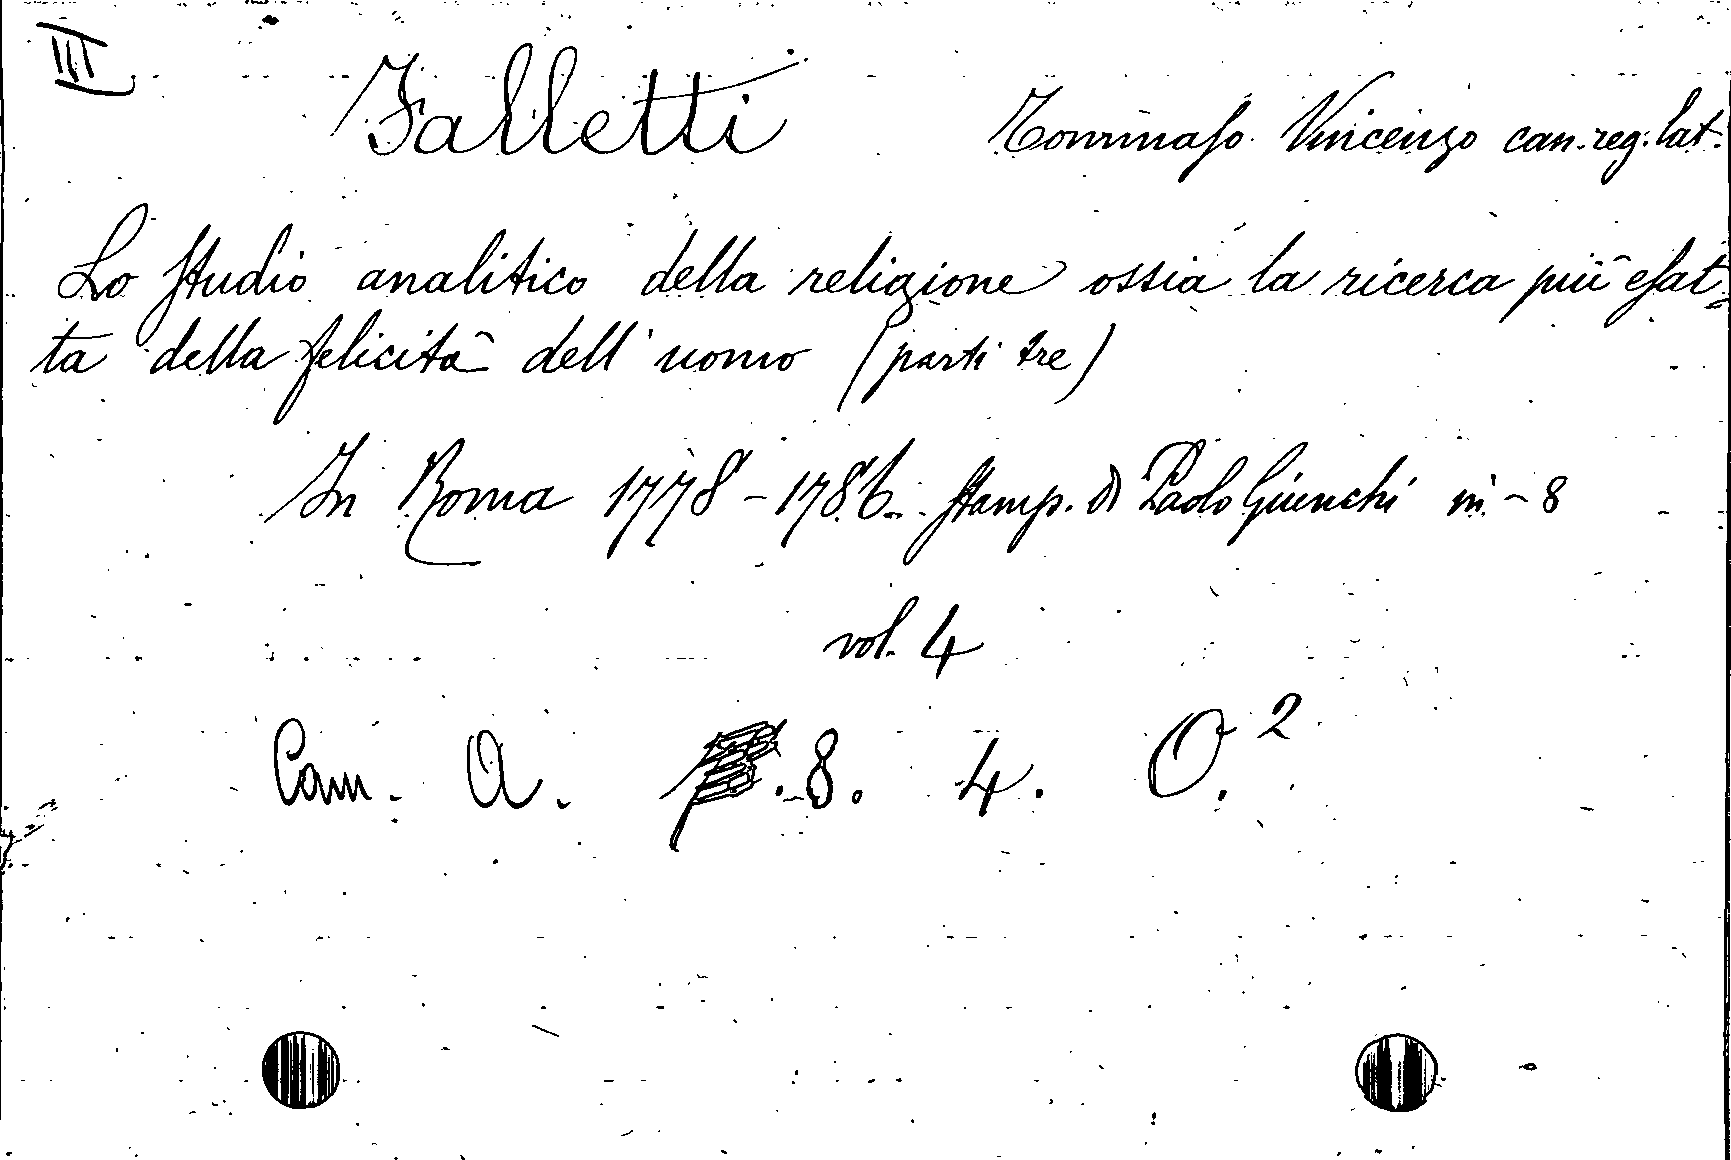 III
Falletti Tommaso Vincenzo can. reg. lat.
Lo studio analitico della religione ossia la ricerca più esat=
ta della felicità dell'uomo (parti tre)
In Roma 1778-1786. stamp. di Paolo Giunchi in-8
vol. 4
Cam. A. 8. 4. O.²